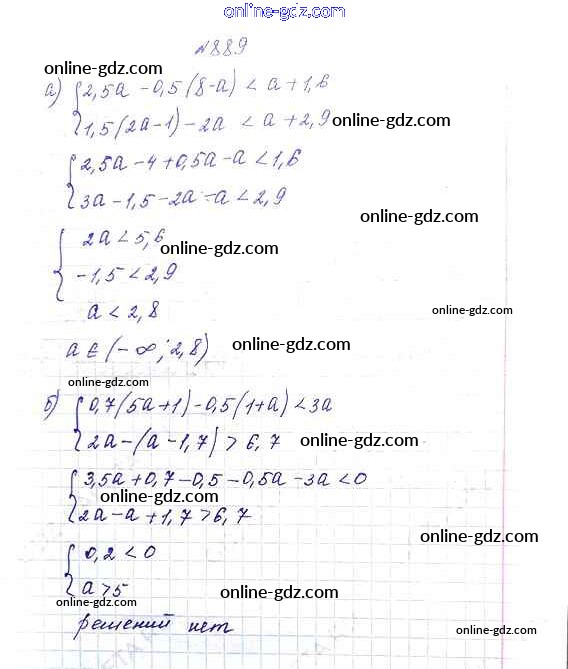 online-gdz.com
№889
online-gdz.com
а) { 2,5a - 0,5(8-a) < a+1,6
1,5(2a-1) - 2a < a+2,9 online-gdz.com
{ 2,5a - 4 + 0,5a - a < 1,6
3a - 1,5 - 2a - a < 2,9 online-gdz.com
{ 2a < 5,6 online-gdz.com
-1,5 < 2,9
a < 2,8 online-gdz.com
a ∈ (-∞; 2,8) online-gdz.com
online-gdz.com
б) { 0,7(5a+1) - 0,5(1+a) < 3a
2a - (a - 1,7) > 6,7 online-gdz.com
{ 3,5a + 0,7 - 0,5 - 0,5a - 3a < 0
online-gdz.com
2a - a + 1,7 > 6,7
online-gdz.com
{ 0,2 < 0
a > 5 online-gdz.com
online-gdz.com
решений нет
online-gdz.com